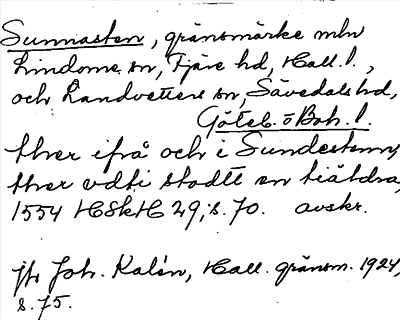 Sunnasten, gränsmärke mln
Lindome sn, Fjäre hd, Hall. l.,
och Landvetters sn, Sävedals hd,
Göteb. o Boh. l.
ther ifrå och i Sundesten,
ther vdti stodtt en tiäldra,
1554 HSkH 29, s. 70. avskr.
jfr Joh. Kalén, Hall. gränsm. 1924,
s. 75.